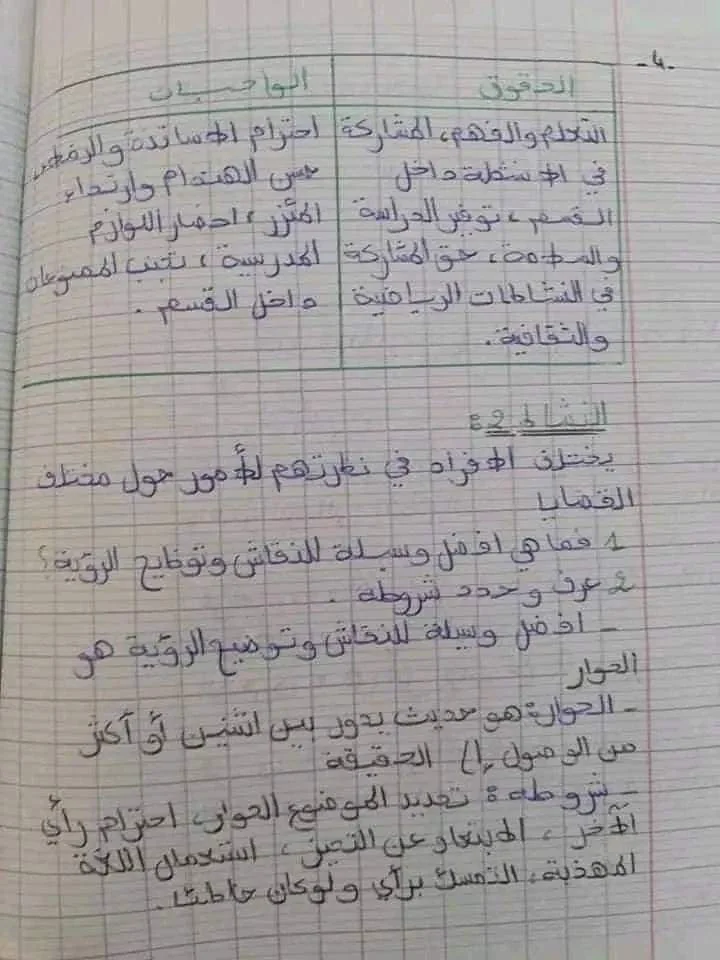 -4-
الحقوق
الواجبات
التعلم والفهم، المشاركة
في الأنشطة داخل
القسم، توفير الدراسة
حق المشاركة
في النشاطات الرياضية
والثقافية.
احترام الأساتذة
حسن الهندام وارتداء
المئزر، احضار اللوازم
المدرسية، تجنب الممنوعات
داخل القسم.
النشاط 2:
يختلف الأفراد في نظرتهم للأمور حول مختلف
القضايا
1 فما هي افضل وسيلة للنقاش وتوظيح الرؤية؟
2 عرف وحدد شروطه.
- افضل وسيلة للنقاش وتوضيح الرؤية هو
الحوار
- الحوار: هو حديث يدور بين اثنين أو أكثر
من الوصول إلى الحقيقة
- شروطه: تحديد الموضوع الحوار، احترام رأي
الآخر، الابتعاد عن التحيز، استعمال اللغة
المهذبة، التمسك برأي ولوكان خاطئا.